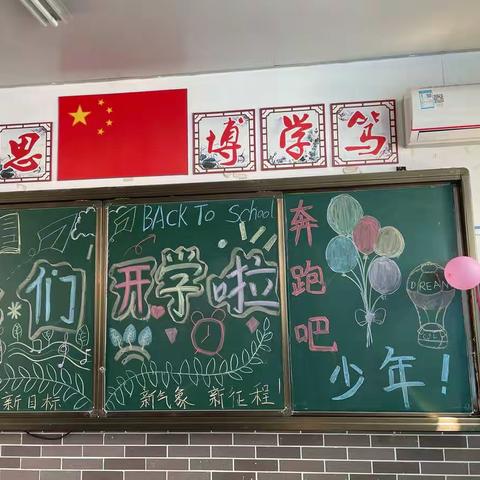 思 博学笃
BACK To School
们开学啦
新目标 新气象 新征程
奔跑吧
少年!
DREAM